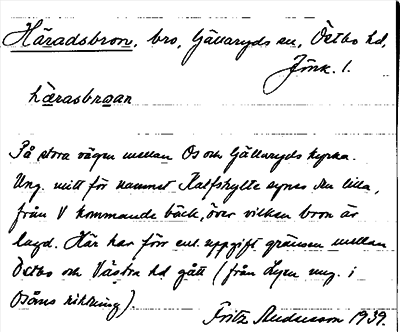 Häradsbron, bro, Gällaryds sn, Östbo hd,
Jönk. l.
hærasbroan
På stora vägen mellan Os och Gällaryds kyrka.
Ung. mitt för namnet Kalfshylte synes den lilla,
från V kommande bäck, över vilken bron är
lagd. Här har förr enl. uppgift gränsen mellan
Östbo och Västra hd gått (från Lyen ung. i
Osåns riktning).
Fritz Andersson 1939.